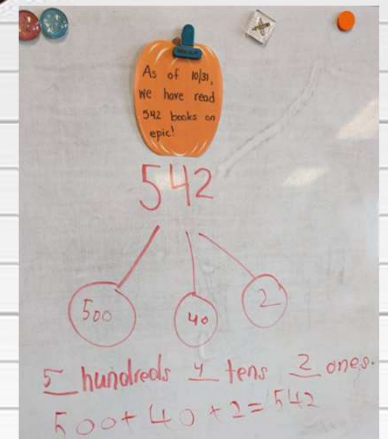 As of 10/31,
we have read
542 books on
epic!
542
500 40 2
5 hundreds 4 tens 2 ones.
500+ 40 + 2 = 542